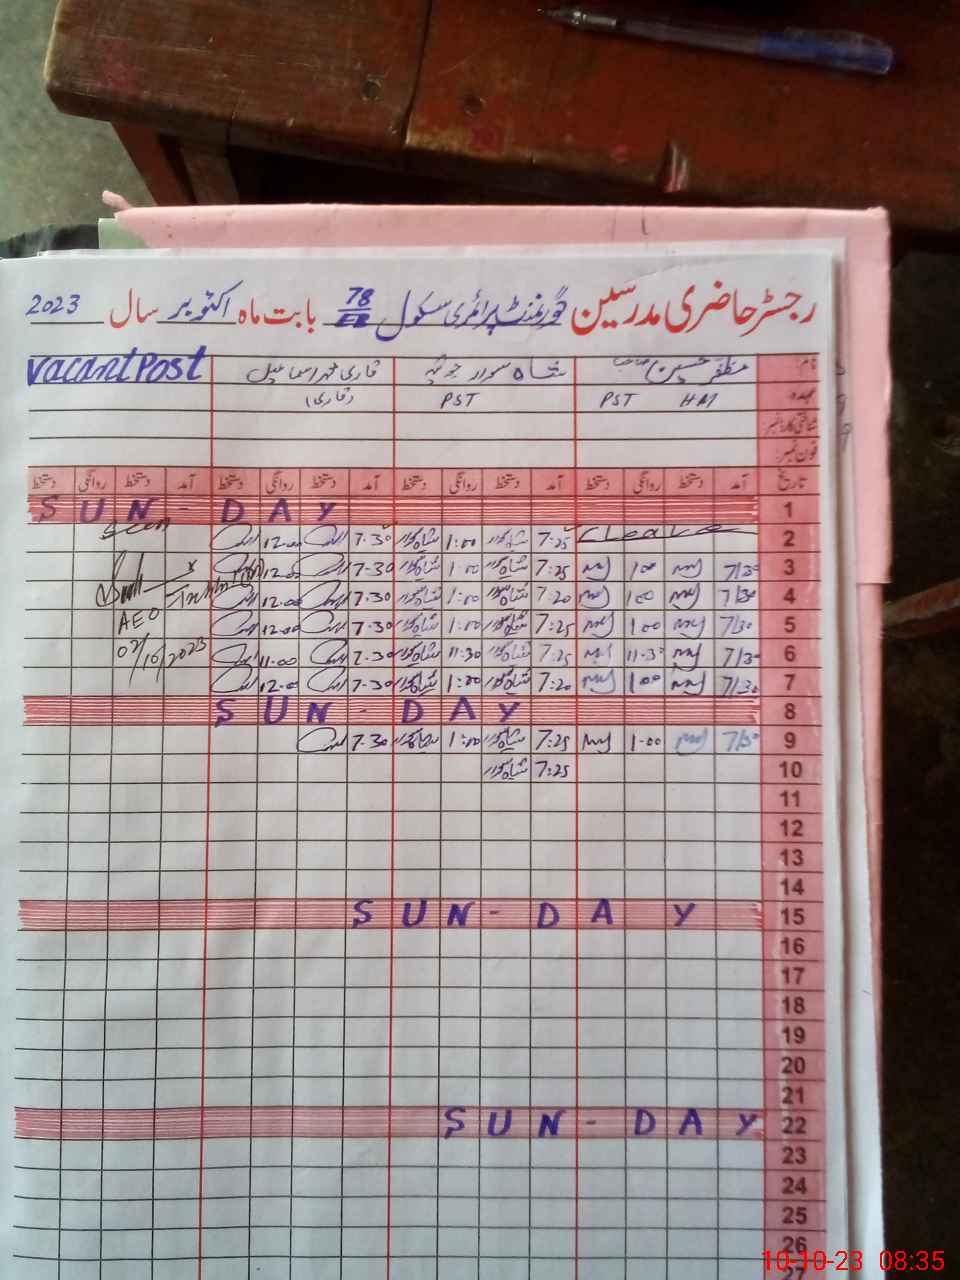 رجسٹر حاضری مدرسین گورنمنٹ پرائمری سکول 78/EB بابت ماہ اکتوبر سال 2023
نام: مظفر حسین صاحب شاہ سوار جوئیہ قاری محمد اسماعیل Vacant Post
عہدہ PST HM PST (قاری)
شناختی کارڈ نمبر:
فون نمبر:
تاریخ آمد دستخط روانگی دستخط آمد دستخط روانگی دستخط آمد دستخط روانگی دستخط آمد دستخط روانگی دستخط
1 SUN-DAY
2 C Leave 7:25 1:00 7-30 12.00 Seen
3 7/30 1 00 7:25 1:00 7-30 12.00
4 7/30 1 00 7:20 1:00 7-30 12.00
5 7/30 1 00 7:25 1:00 7-30 12.00 AEO
6 7/30 11.30 7:25 11:30 7-30 11.00 02/10/2023
7 7/30 1 00 7:20 1:00 7-30 12.00
8 SUN-DAY
9 7/30 1-00 7:25 1:00 7-30
10 7:25
11
12
13
14
15 SUN-DAY
16
17
18
19
20
21
22 SUN-DAY
23
24
25
26
27
10-10-23 08:35